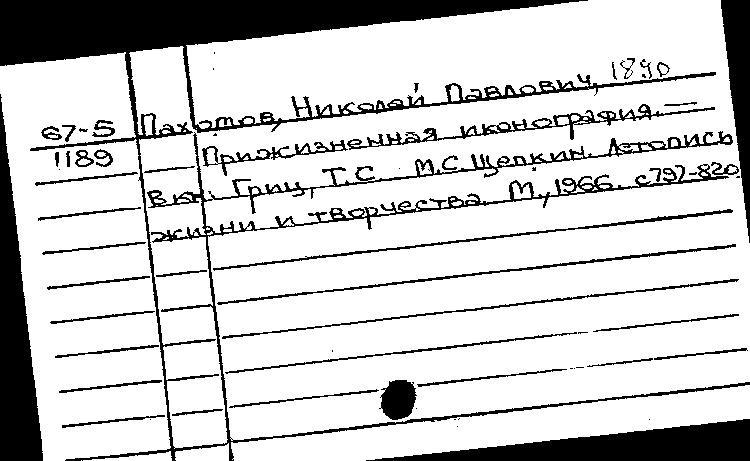 67-5 Пахомов, Николай Павлович, 1890
1189 Прижизненная иконография. —
В кн.: Гриц, Т.С. М.С. Щепкин. Летопись
жизни и творчества. М., 1966. с 797-820